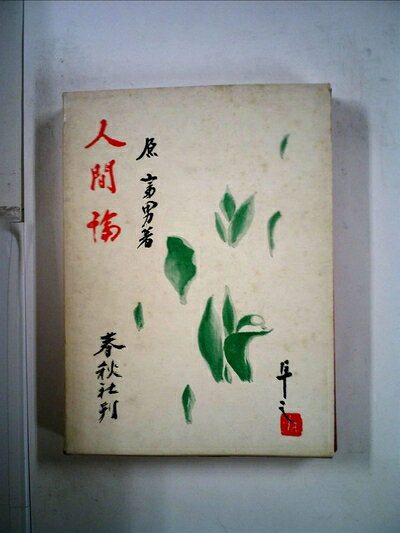 人間論
原 富男著
春秋社刊